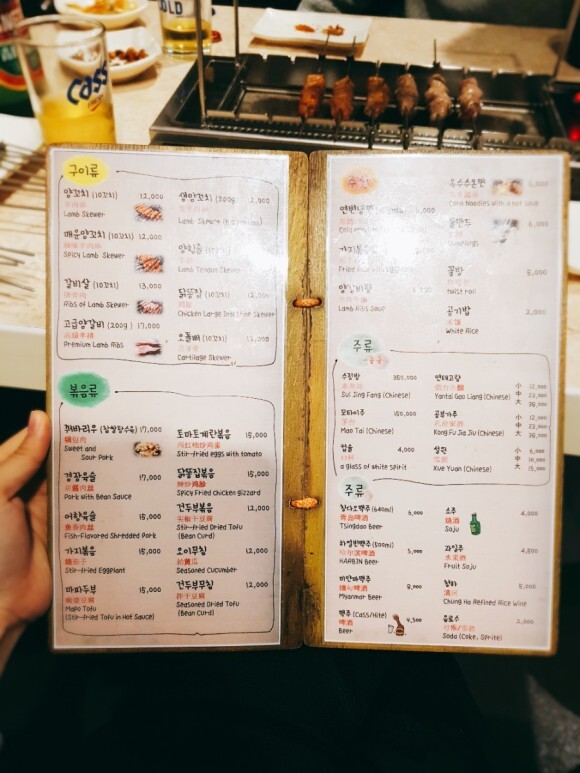 Cass
구이류
양꼬치 (10꼬치) 12,000
Lamb Skewer
매운양꼬치 (10꼬치) 12,000
Spicy Lamb Skewer
갈비살 (10꼬치) 13,000
Ribs of Lamb Skewer
고급양갈비 (200g) 17,000
Premium Lamb Ribs
생양꼬치 (200g)
Lamb Tendon Skewer
닭똥집 (10꼬치)
Chicken Large Intestine Skewer
오돌뼈 (10꼬치)
Cartilage Skewer
볶음류
꿔바로우 (찹쌀탕수육) 17,000
锅包肉
Sweet and
Sour Pork
경장육슬 17,000
京酱肉丝
Pork with Bean Sauce
어향육슬 15,000
鱼香肉丝
Fish-Flavored Shredded Pork
가지볶음 15,000
烧茄子
Stir-fried Eggplant
마파두부 15,000
麻婆豆腐
Mapo Tofu
(Stir-fried Tofu in Hot Sauce)
토마토계란볶음 15,000
Stir-fried eggs with tomato
닭똥집볶음 15,000
Spicy Fried chicken gizzard
건두부볶음 12,000
尖椒干豆腐
Stir-fried Dried Tofu
(Bean Curd)
오이무침 12,000
拍黄瓜
Seasoned Cucumber
건두부무침 12,000
拌干豆腐
Seasoned Dried Tofu
(Bean Curd)
옥수수온면
Corn Noodles with a hot soup
물만두
Dumplings
꽃빵 5,000
Twist roll
공기밥 2,000
米饭
White Rice
Lamb Ribs Soup
주류
수정방 350,000
水井坊
Sui Jing Fang (Chinese)
모타이주 150,000
茅台
Mao Tai (Chinese)
잡술 4,000
a glass of white spirit
연태고량
Yantai Gao Liang (Chinese)
小 12,000
中 22,000
大 38,000
공부가주
孔府家酒
Kong Fu Jia Jiu (Chinese)
小 12,000
中 22,000
大 38,000
설원
雪原
Xue Yuan (Chinese)
小 6,000
中 10,000
大 15,000
주류
칭다오맥주 (640ml) 6,000
青岛啤酒
Tsingdao Beer
하얼빈맥주 (500ml) 5,000
哈尔滨啤酒
HARBIN Beer
미얀마맥주 8,000
缅甸啤酒
Myanmar Beer
맥주 (Cass/Hite) 4,500
啤酒
Beer
소주 4,000
烧酒
Soju
과일주 4,500
水果酒
Fruit Soju
청하 5,000
清河
Chung Ha Refined Rice Wine
음료수 2,000
可乐/雪碧
Soda (Coke, Sprite)